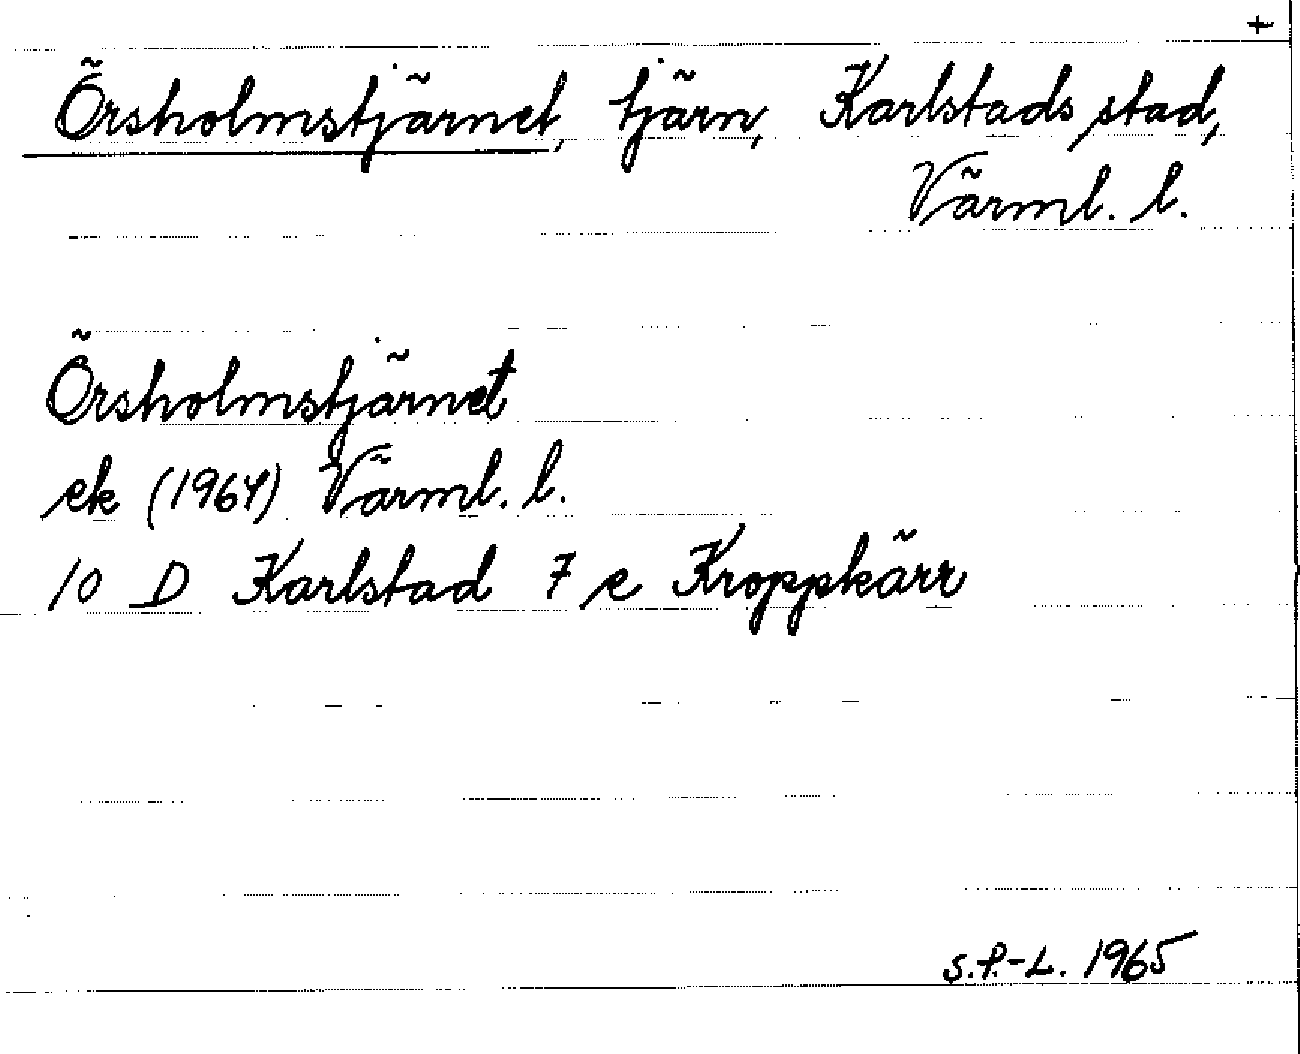 +
Örsholmstjärnet, tjärn, Karlstads stad,
Värml. l.
Örsholmstjärnet
ek (1964) Värml. l.
10 D Karlstad 7 e Kroppkärr
S.P.-L. 1965